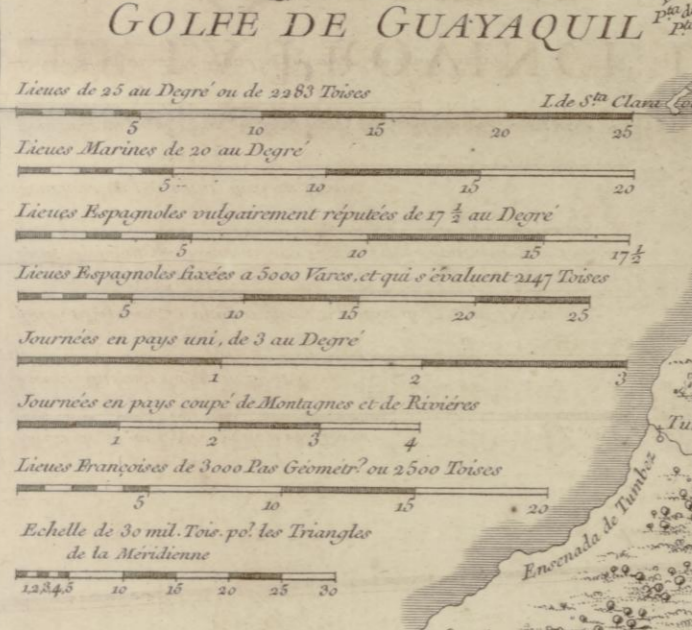 GOLFE DE GUAYAQUIL
Pta de
Pta
Lieues de 25 au Degré ou de 2283 Toises
I. de Sta Clara
5 10 15 20 25
Lieues Marines de 20 au Degré
5 10 15 20
Lieues Espagnoles vulgairement réputées de 17 1/2 au Degré
5 10 15 17 1/2
Lieues Espagnoles fixées a 5000 Vares, et qui s'évaluent 2147 Toises
5 10 15 20 25
Journées en pays uni, de 3 au Degré
1 2 3
Journées en pays coupé de Montagnes et de Riviéres
1 2 3 4
Tu
Lieues Françoises de 3000 Pas Géometr? ou 2500 Toises
5 10 15 20
Echelle de 30 mil. Tois. por. les Triangles
de la Méridienne
1,2,3,4,5 10 15 20 25 30
Ensenada de Tumbez